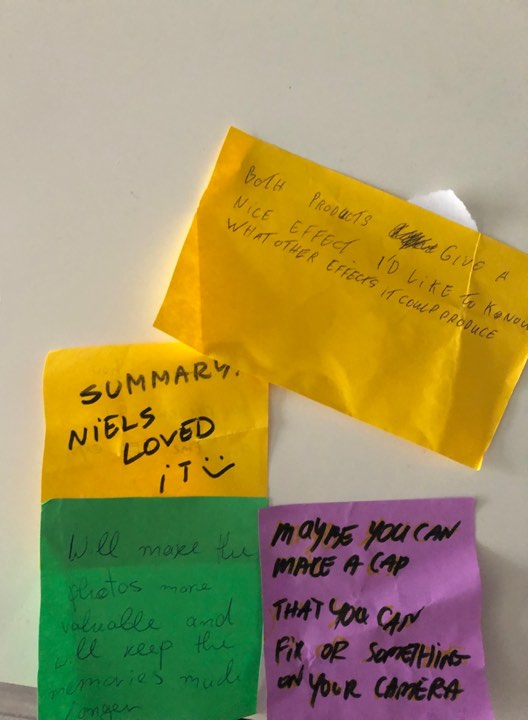 BOTH PRODUCTS GIVE A
NICE EFFECT I'D LIKE TO KONOW
WHAT OTHER EFFECTS IT COULD PRODUCE
SUMMARY.
NiELS
LOVED
iT
Will make the
photos more
valuable and
will keep the
memories much
longer
MAYBE YOU CAN
MAKE A CAP
THAT YOU CAN
FiX OR SOMETHING
ON YOUR CAMERA